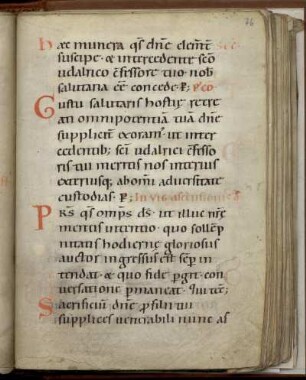 76
Haec munera qs dne clem̄t Sec
suscipe · & intercedente sc̄o
udalrico cf̄essore tuo nob
salutaria ēē concede · P; P Co
Gustu salutaris hostiȩ
ati omnipotentiā tuā dn̄e
supplicit̄ exoram' ut inter
cedentib; sc̄i udalrici cf̄esso
ris tui meritis nos interius
exteriusq; ab om̄i aduersitate
custodias · P; In uig ascensionis d
PRS qs omp̄s ds · ut illuc nr̄ȩ
mentis intentio quo sollēp
nitatis hodiernȩ gloriosus
auctor ingressus est semp in
tendat · & quo fide p̄git con
uersatione p̄maneat ·
Sacrificiū dn̄e p̄ filii tui
supplices uenerabili nunc as